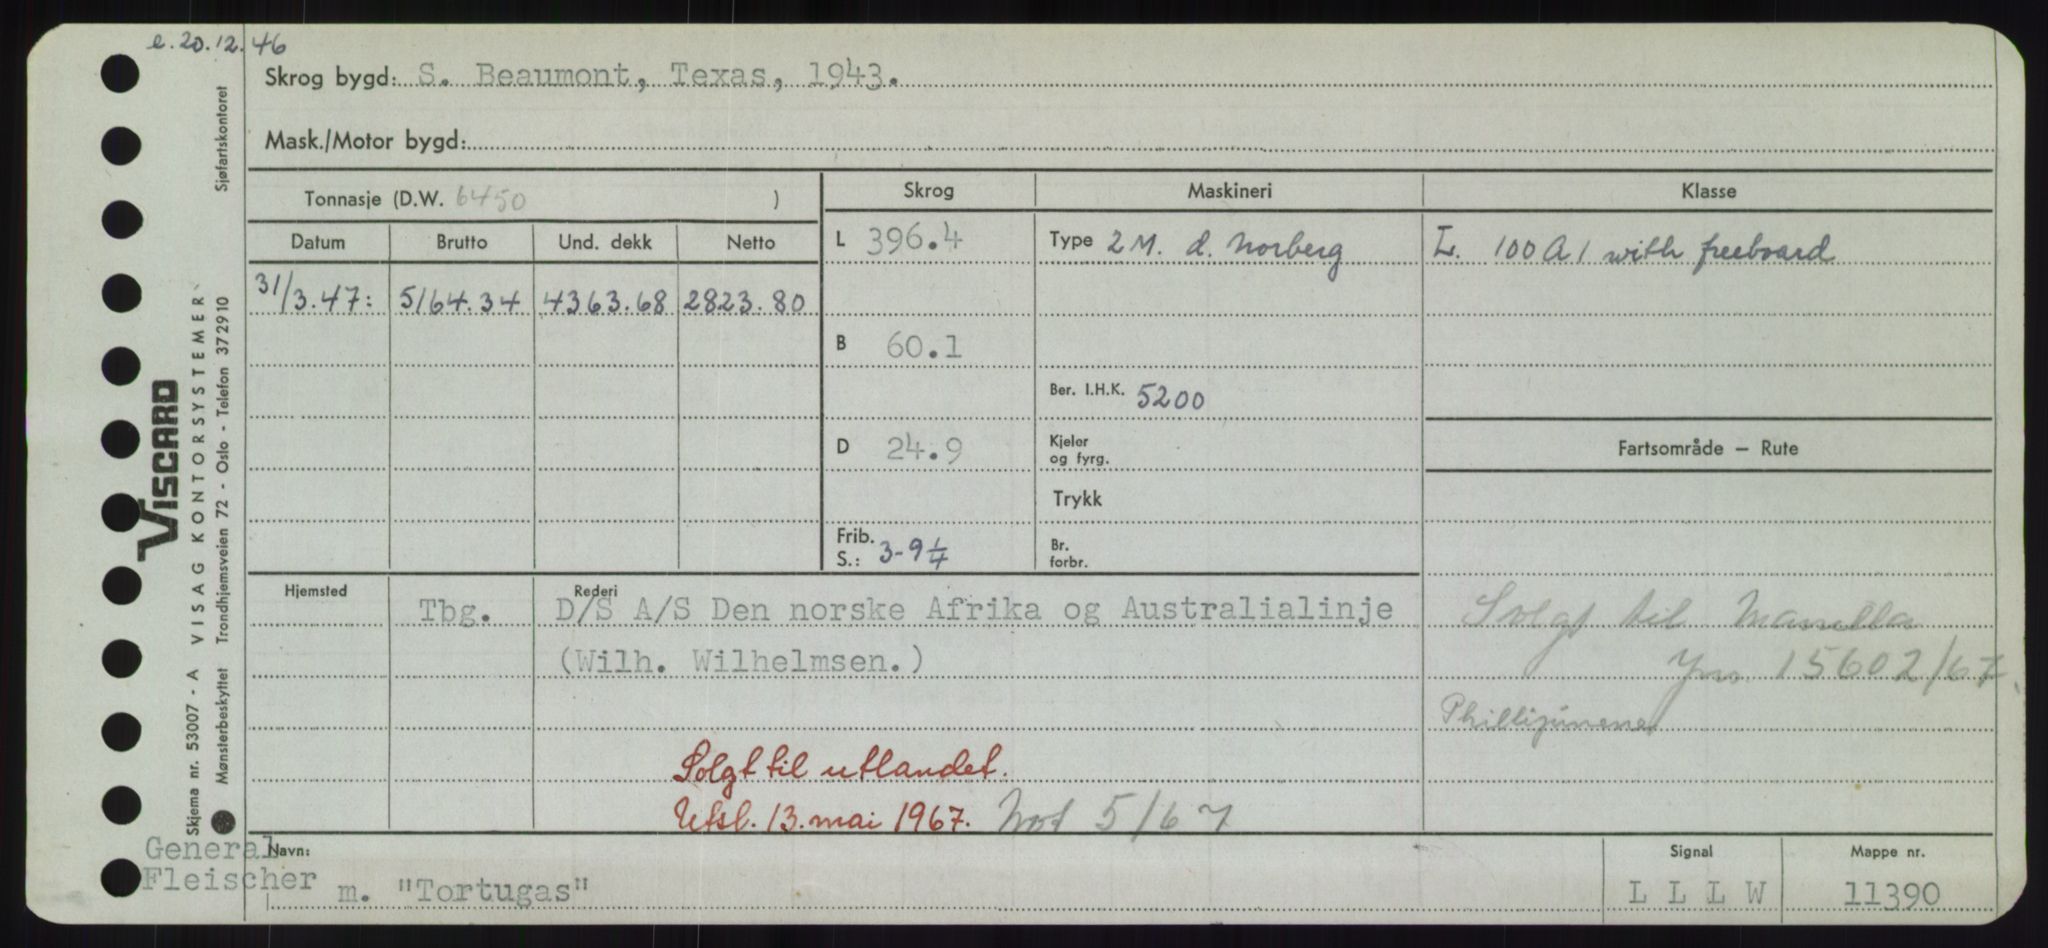 e. 20.12.46
Skrog bygd: S. Beaumont, Texas, 1943.
Mask./Motor bygd:
Tonnasje (D.W. 6450 )
Datum Brutto Und. dekk Netto
31/3.47: 5164.34 4363.68 2823.80
Skrog
L 396.4
B 60.1
D 24.9
Frib.
S.: 3-9 1/4
Maskineri
Type 2 M. d. Norberg
Ber. I.H.K. 5200
Kjeler
og fyrg.
Trykk
Br.
forbr.
Klasse
L. 100 A 1 with freeboard
Fartsområde — Rute
Solgt til Manilla
Jnr. 15602/67
Phillipinene
Hjemsted Rederi
Tbg. D/S A/S Den norske Afrika og Australialinje
(Wilh. Wilhelmsen.)
Solgt til utlandet.
Utsl. 13. mai 1967. Not 5/67
General
Fleischer
Navn:
m. "Tortugas"
Signal
L L L W
Mappe nr.
11390
VISCARD
Skjema nr. 53007 - A VISAG KONTORSYSTEMER
Mønsterbeskyttet Trondhjemsveien 72 - Oslo - Telefon 372910 Sjøfartskontoret